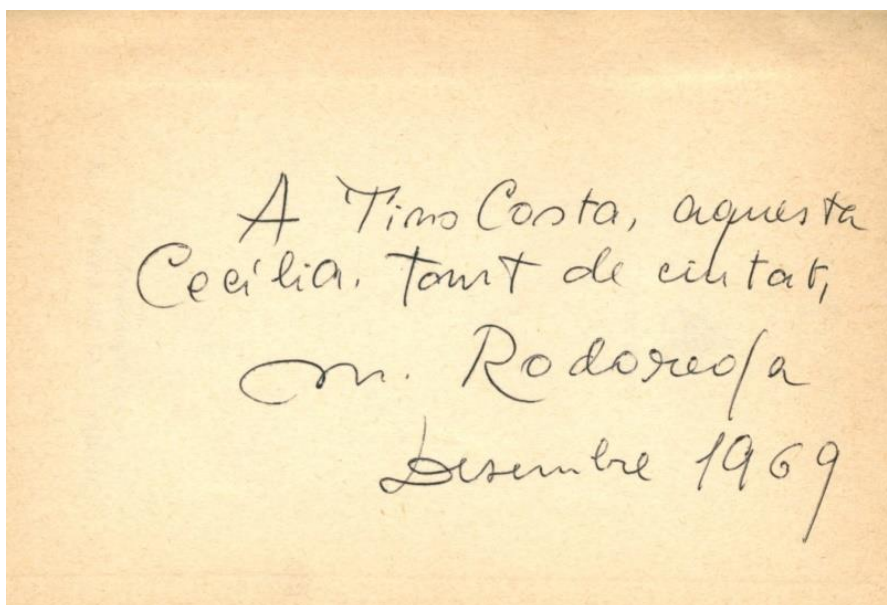 A Tino Costa, aquesta
Cecília. tant de ciutat,
M. Rodoreda
Desembre 1969